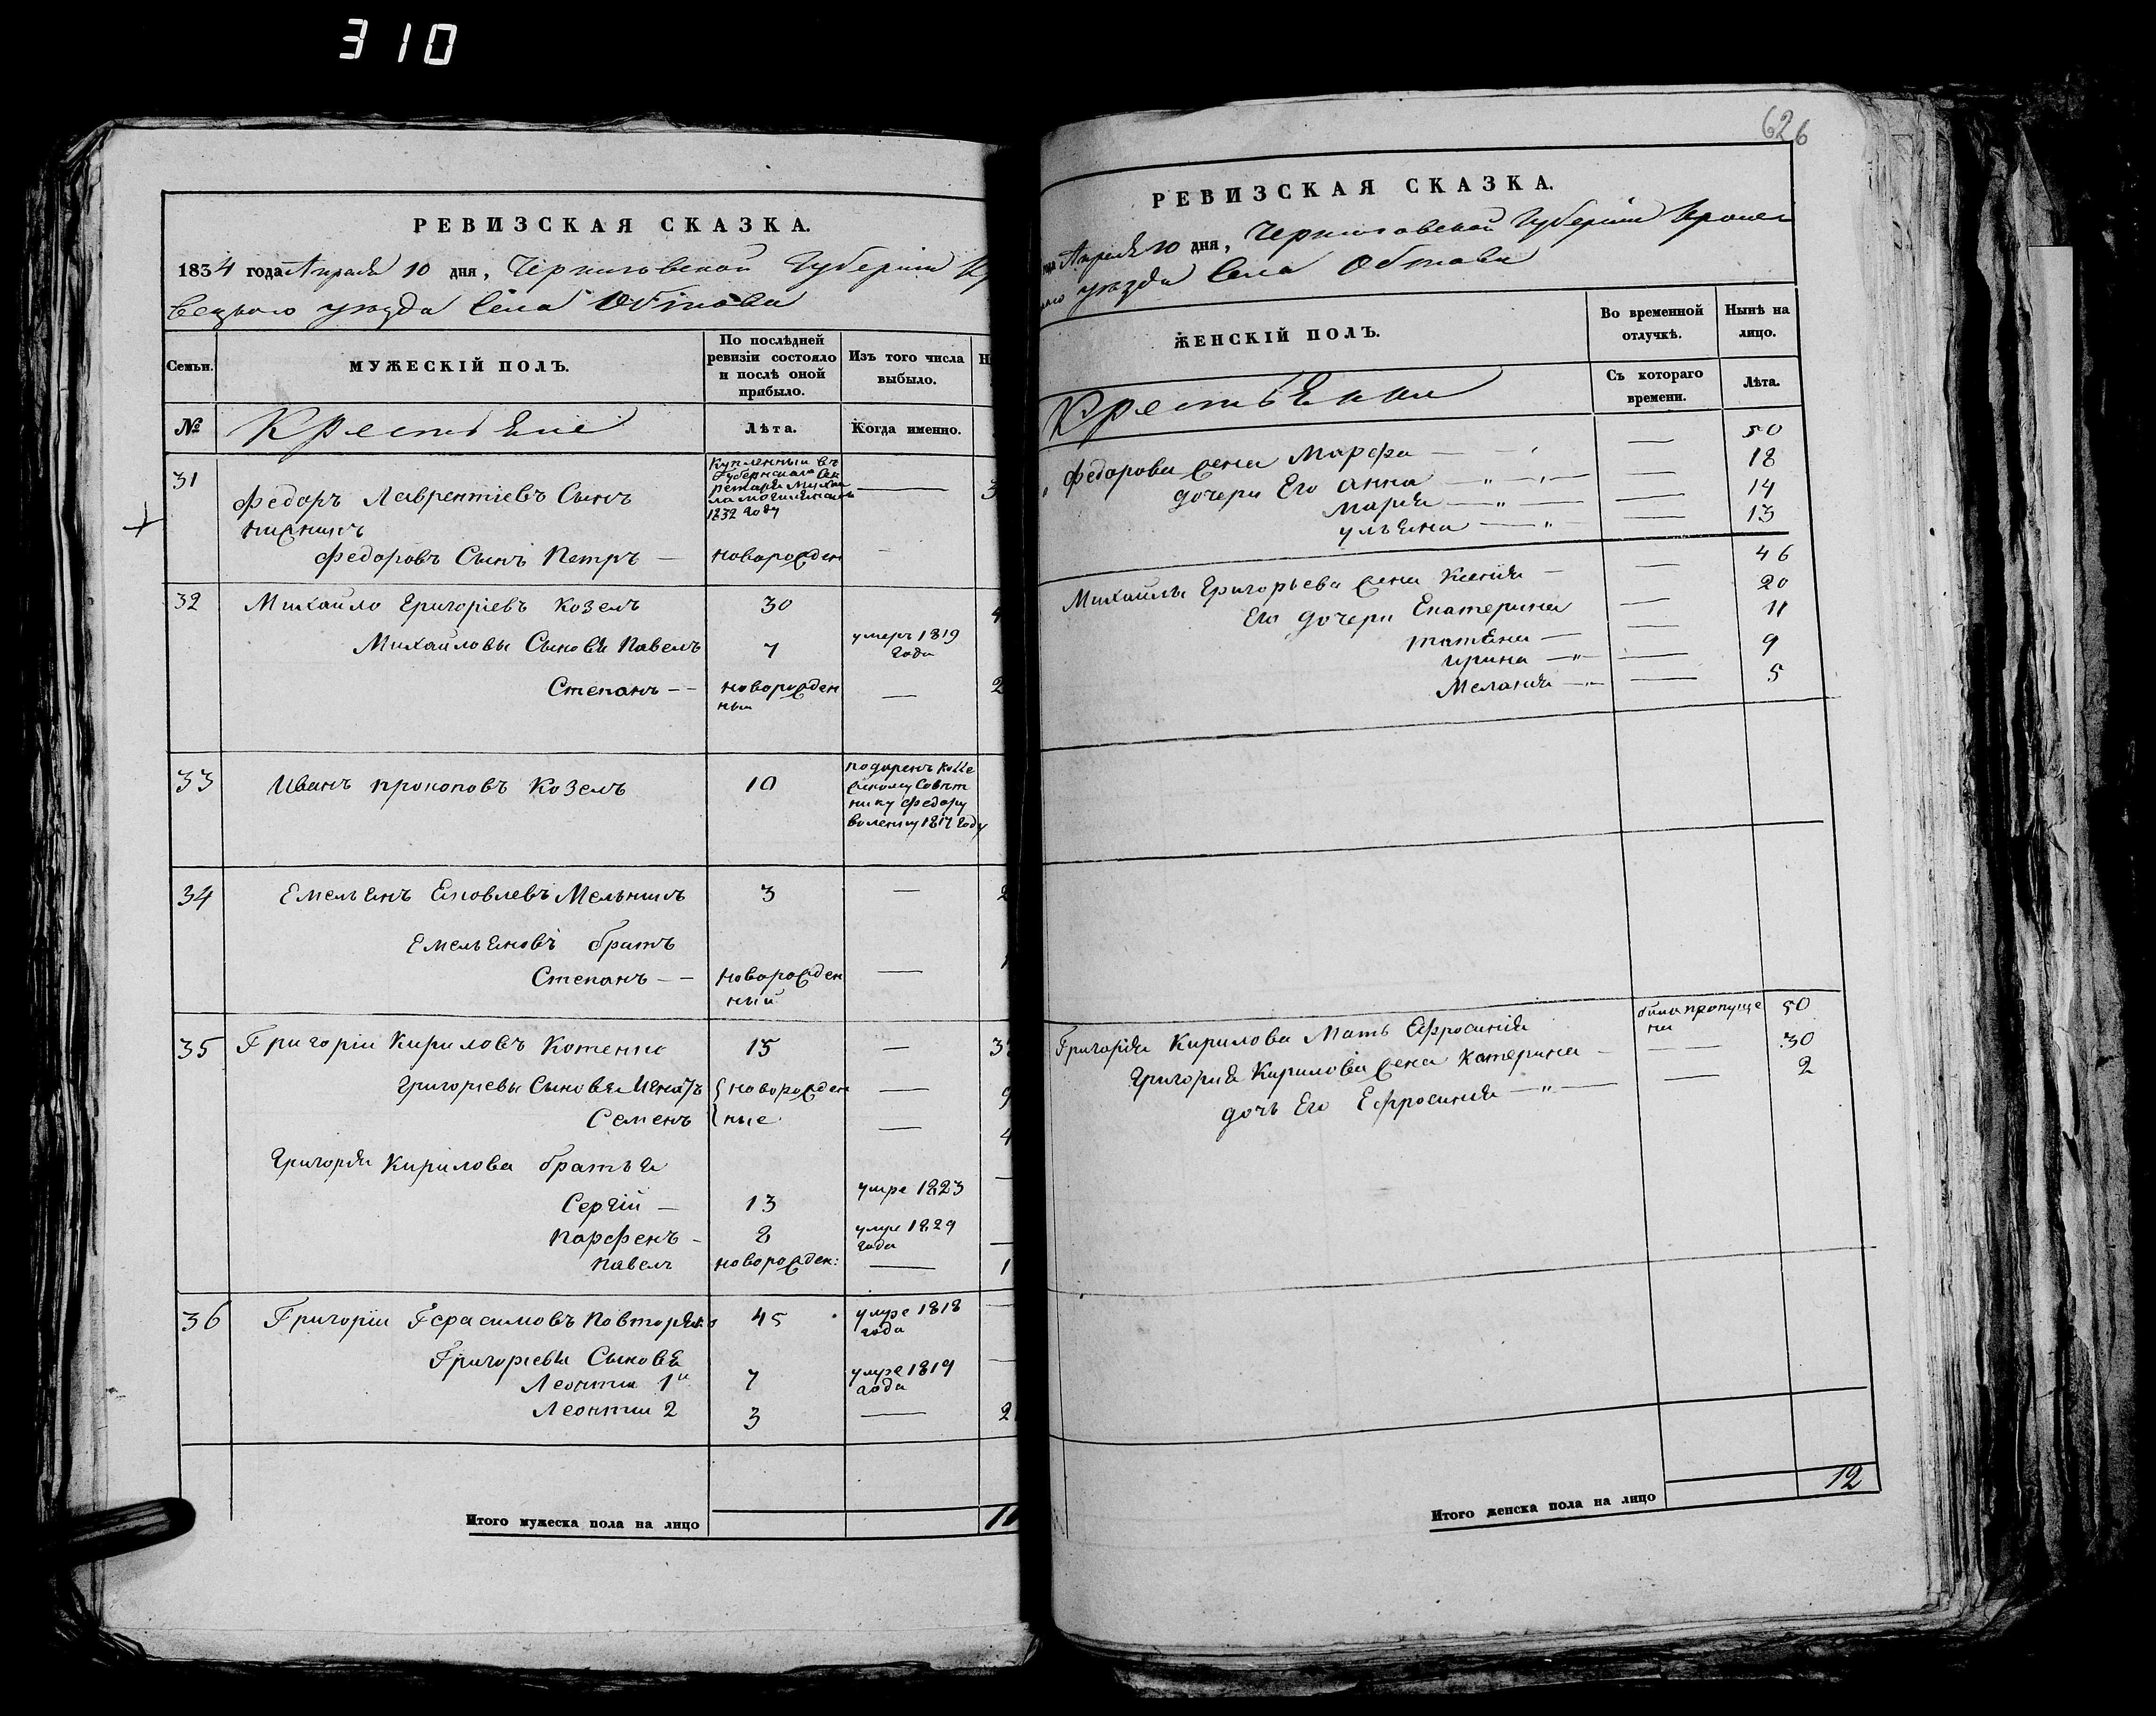 310
РЕВИЗСКАЯ СКАЗКА.
1834 года Апреля 10 дня, Черниговской Губернии Кр
вецкого уезда Села Обтова
Семьи.
МУЖЕСКІЙ ПОЛЪ.
По послѣдней ревизіи состояло и послѣ оной прибыло.
Изъ того числа выбыло.
№
Крестьяне
Лѣта.
Когда именно.
31
Федоръ Лаврентіевъ Сынъ
Купленный въ
Губернскаго Сек
ретаря Михаи
1832 году
Федоровъ Сынъ Петръ —
новорожден
32 Михайло Григоріевъ Козелъ 30
Михайловы Сыновья Павелъ 7 умеръ 1819
года
Степанъ — — новорожден
ный
33 Иванъ Прокоповъ Козелъ 10
подаренъ Колле
жскому Совет
нику Федору
году
34 Емельянъ Яковлевъ Мельникъ 3 —
Емельяновъ братъ
Степанъ — — новорожден —
ный
35 Григоріи Кириловъ Котенко 15 —
Григорiевы Сыновья новорожден —
Семенъ ные —
Григорія Кирилова братья
Сергіи — 13 умре 1823
Парфенъ - 2 умре 1829
года
Павелъ новорожден: —
36 Григоріи Герасимовъ 45 умре 1818
года
Григорiевы Сыновья
Леонтии 1й 7 умре 1819
года
Леонтии 2 3 —
Итого мужеска пола на лицо
626
РЕВИЗСКАЯ СКАЗКА.
Апреля 10 дня, Черниговской Губерніи Кролев
уезда Села Обтова
ЖЕНСКІЙ ПОЛЪ.
Во временной отлучкѣ.
Нынѣ на лицо.
Крестьянки
Съ котораго времени.
Лѣта.
Федорова жена Марфа — — 50
дочери Его Анна — 18
Марья — 14
Ульяна — 13
Михайлы Григорьева жена Ксенія — 46
Его дочери Екатерина — 20
Татяна — 11
Ирина — 9
Меланія — 5
Григорія Кирилова Мать Ефросинія
была пропуще
на
50
Григорія Кирилова жена Катерина — 30
дочь Его Ефросинія — 2
Итого женска пола на лицо 12